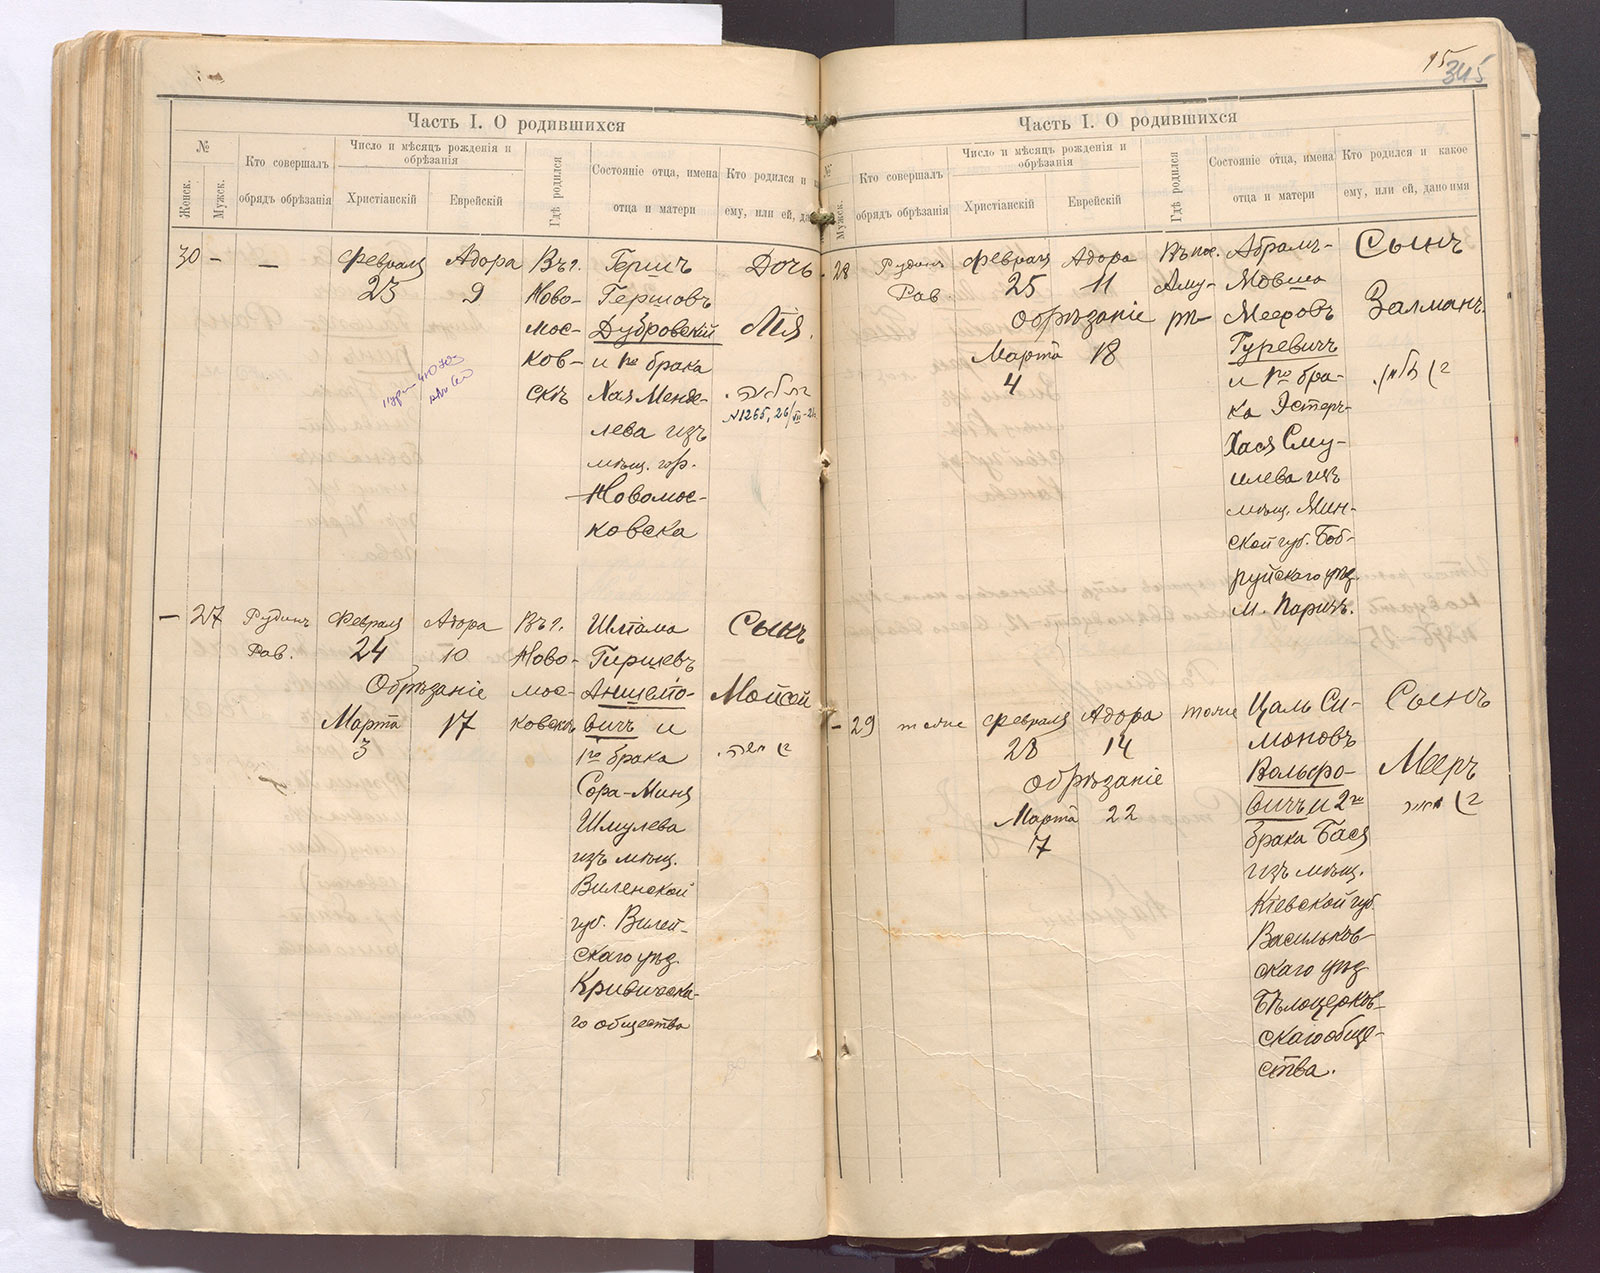 Часть I. О родившихся
№
Женск.
Мужск.
Кто совершалъ
обрядъ обрѣзанія
Число и мѣсяцъ рожденія и
обрѣзанія
Христіанскій
Еврейскій
Гдѣ родился
Состояніе отца, имена
отца и матери
Кто родился и
ему, или ей, да
30 - -
Февраля
23
Адора
9
Въ г.
Ново-
мос-
ков-
скѣ
Гершъ
Гершовъ
Дубровскій
и 1го брака
Хая Менде-
лева изъ
мѣщ. гор.
Новомос-
ковска
Дочь
Лія.
N1265, 26/VII-2
- 27
Рудинъ
Рав.
Февраля
24
Адора
10
Обрѣзаніе
Марта
3
17
Въ г.
Ново-
мос-
ковскѣ
Шліома
Гиршевъ
Аншело-
вичъ и
1го брака
Сора-Миня
Шмулева
изъ мѣщ.
Виленской
губ. Вилей-
скаго уѣзд.
Кривическа-
го общества
Сынъ
Мойсей
משה
15
345
Часть I. О родившихся
№
Мужск.
Кто совершалъ
обрядъ обрѣзанія
Число и мѣсяцъ рожденія и
обрѣзанія
Христіанскій
Еврейскій
Гдѣ родился
Состояніе отца, имена
отца и матери
Кто родился и какое
ему, или ей, дано имя
- 28
Рудинъ
Рав.
Февраля
25
Адора
11
Обрѣзаніе
Марта
4
18
Въ пос.
Аму-
рѣ-
Абрамъ-
Мовша
Мееровъ
Гуревичъ
и 1го бра-
ка Эстеръ-
Хася Сму-
илева изъ
мѣщ. Мин-
ской губ. Боб-
руйскаго уѣзд.
м. Паричъ.
Сынъ
Залманъ.
- 29
тоже
Февраля
28
Адора
14
Обрѣзаніе
Марта
7
22
тоже
Цаль Си-
моновъ
Вольфо-
вичъ и 2го
брака Бася
изъ мѣщ.
Кіевской губ.
Васильков-
скаго уѣзд
Бѣлоцерков-
скаго обще-
ства.
Сынъ
Мееръ
מאיר